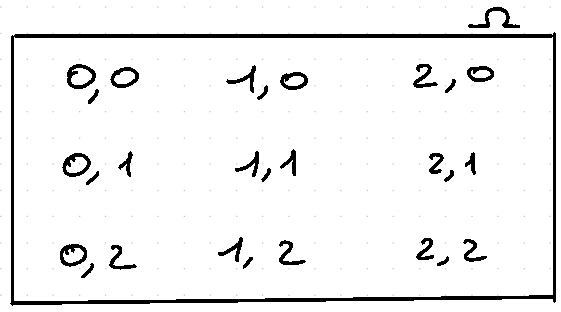 Ω
0,0 1,0 2,0
0,1 1,1 2,1
0,2 1,2 2,2